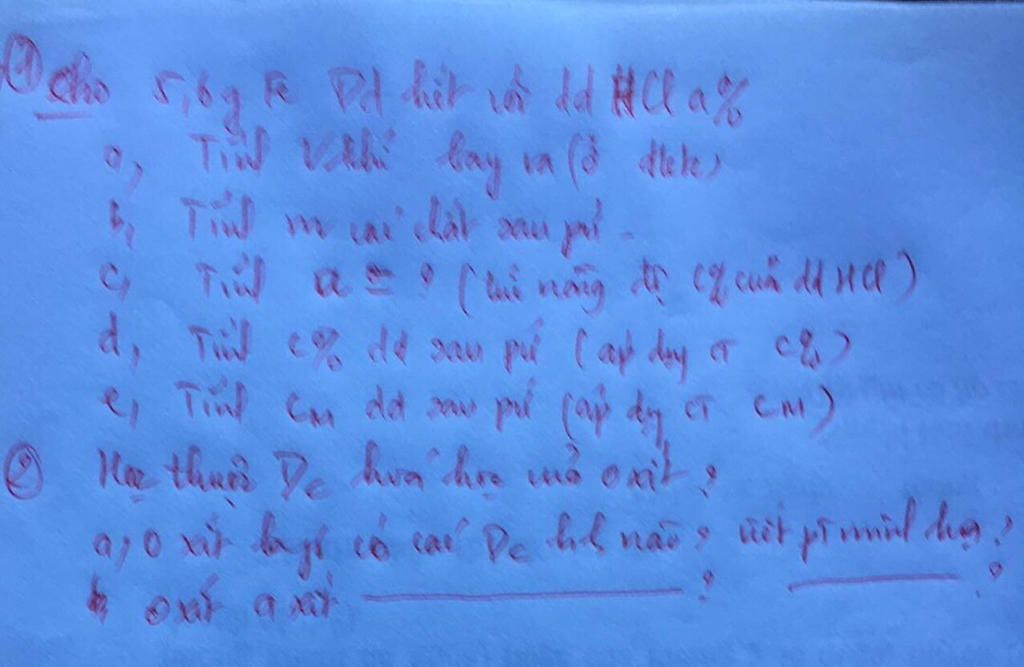 ① Cho 5,6g Fe Pứ hết với dd HCl a%
a, Tính V khí bay ra (ở đktc)
b, Tính m các chất sau pứ.
c, Tính a = ? (tức nồng độ C% của dd HCl)
d, Tính C% dd sau pứ (áp dụng CT C%)
e, Tính CM dd sau pứ (áp dụng CT CM)
② Học thuộc Tc hoá học của oxit?
a, Oxit bazơ có các Tc hh nào? viết pt minh hoạ?
b oxit axit ?